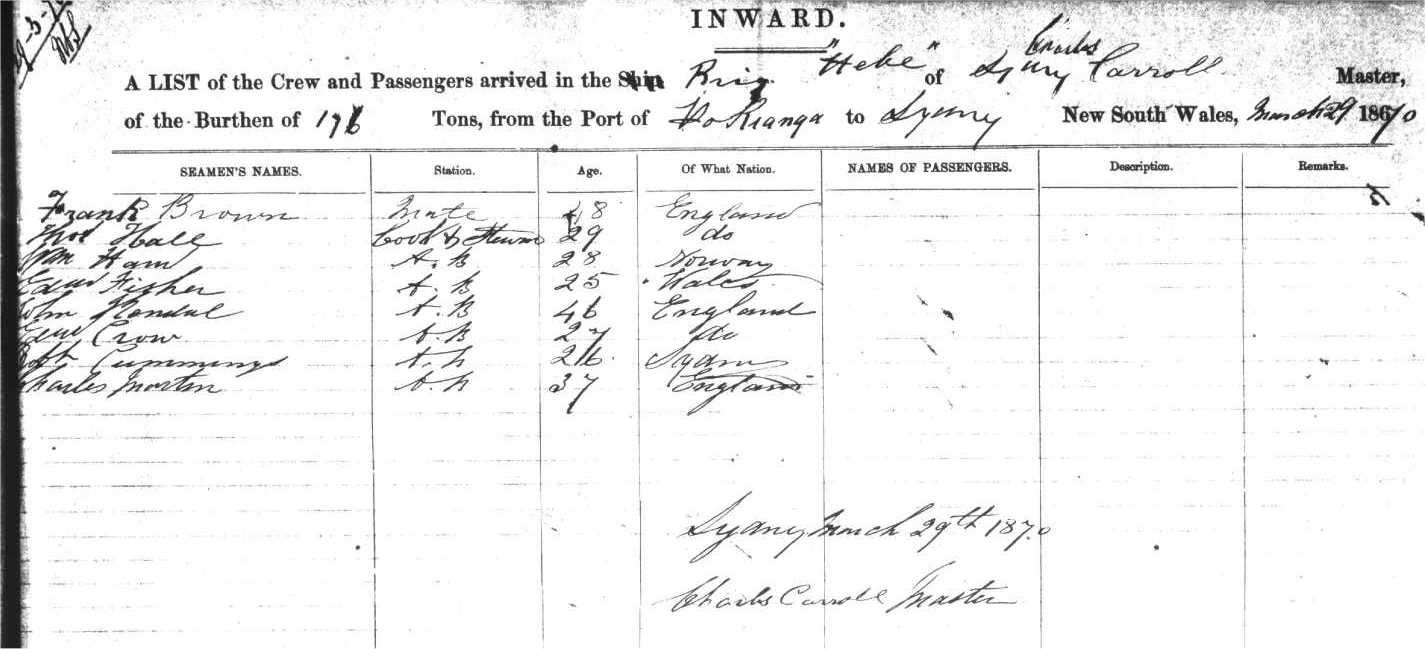 INWARD.
A LIST of the Crew and Passengers arrived in the Ship Brig "Hebe" of Sydney Charles Carroll Master,
of the Burthen of 176 Tons, from the Port of Hokianga to Sydney New South Wales, March 29 1870
SEAMEN'S NAMES. Station. Age. Of What Nation. NAMES OF PASSENGERS. Description. Remarks.
Frank Brown Mate 48 England
Thos Hall Cook & Steward 29 do
Wm Ham A.B 28 Norway
Fisher A.B 25 Wales
John A.B 46 England
Crow A.B 27 do
Cummings A.B 26
Charles Martin A.B 37 England
Sydney March 29th 1870
Charles Carroll Master